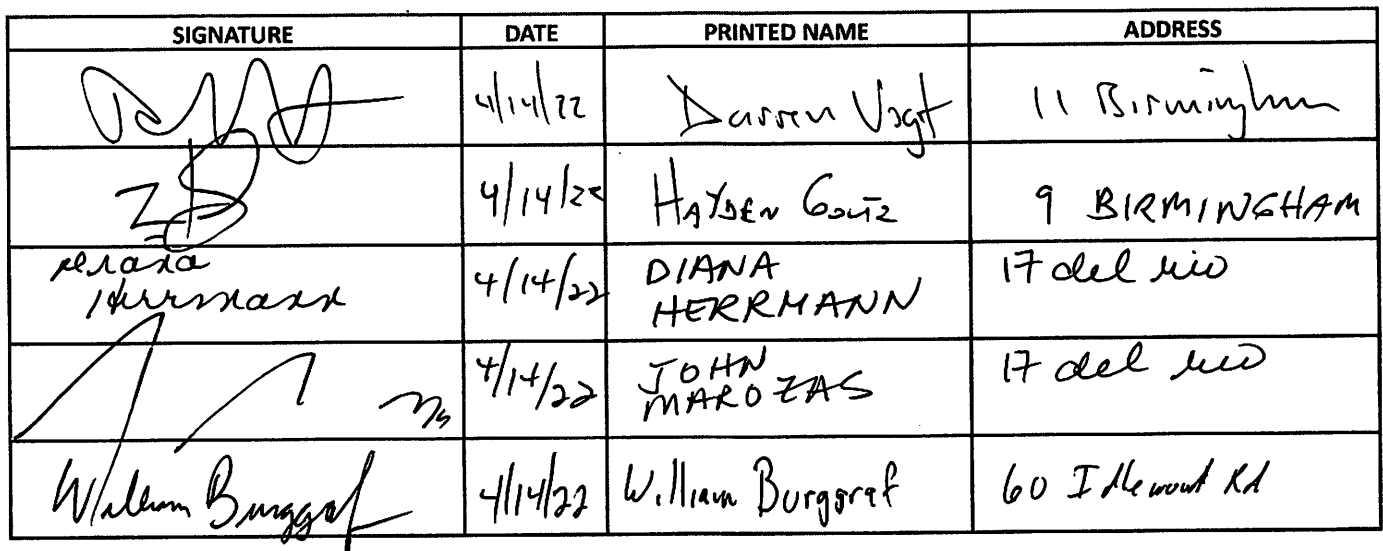 SIGNATURE DATE PRINTED NAME ADDRESS
4/14/22 Darren Vogt 11 Birmingham
4/14/22 HAYDEN 9 BIRMINGHAM
Diana
Herrmann
4/14/22
DIANA
HERRMANN
17 del rio
4/14/22
JOHN
MAROZAS
17 del rio
William Burggraf 4/14/22 William Burggraf 60 Rd